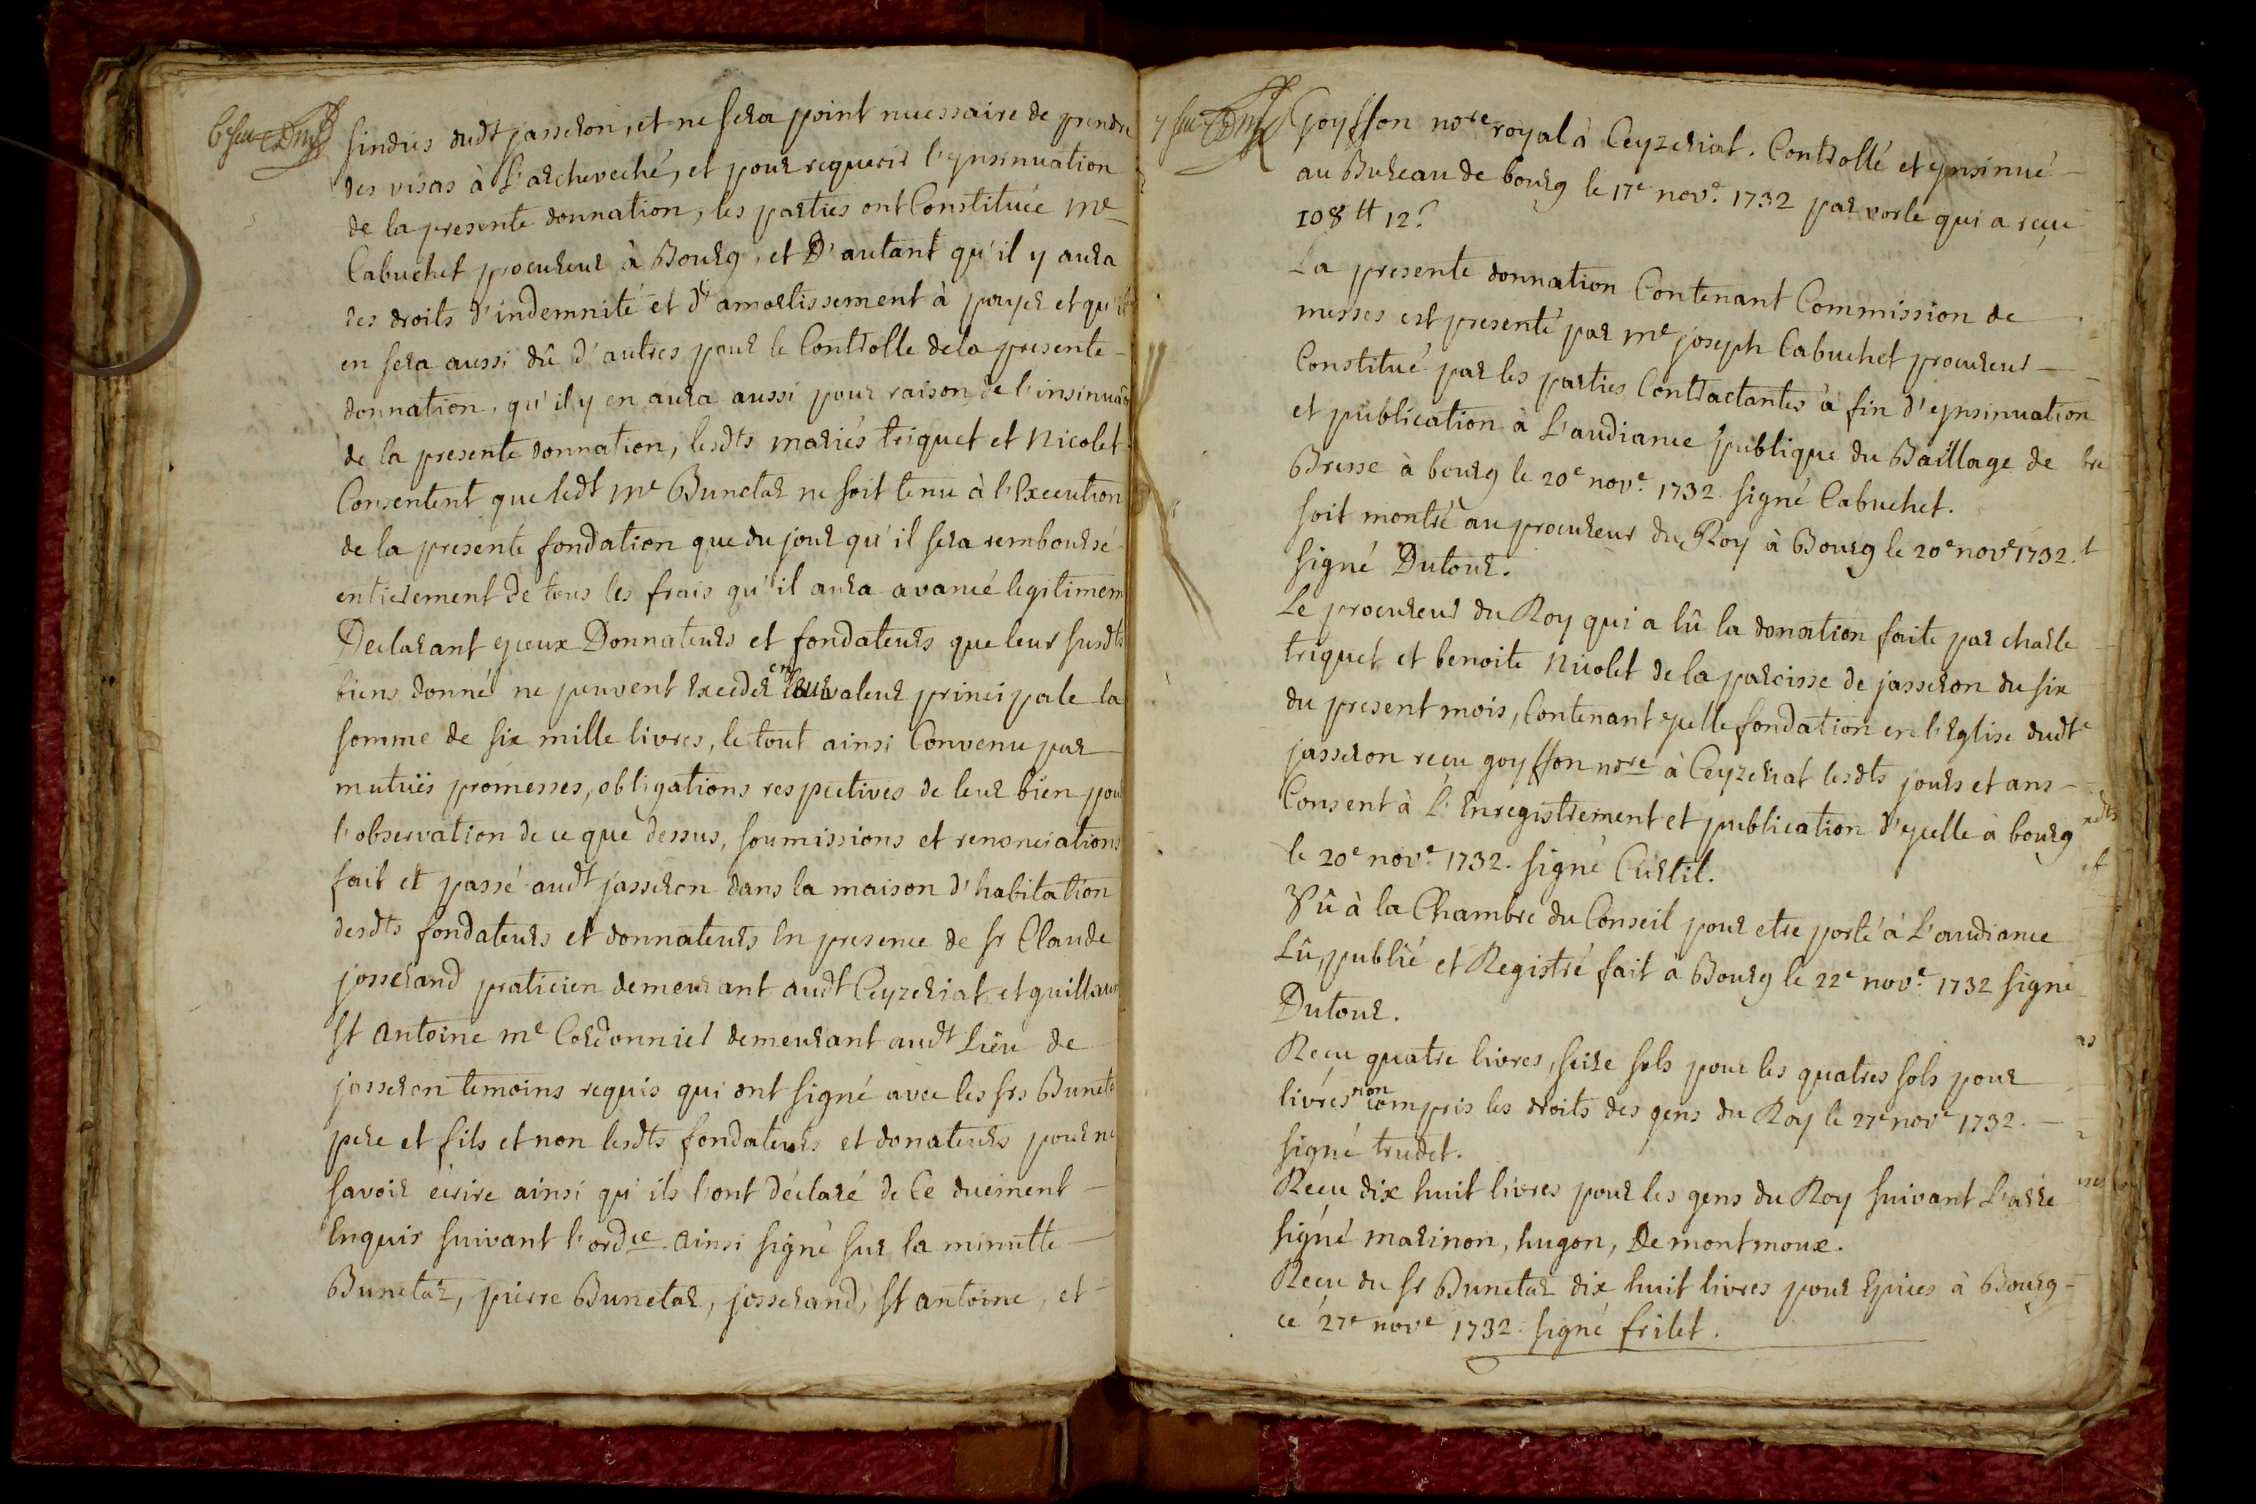 6e feu
sindics dudt jasseron, et ne sera point necessaire de prendre
des visas à L'archeveché, et pour requerir l'ynsinuation
de la presente donnation, les parties ont Constituée me
Cabuchet procureur à Bourg, et D'autant qu'il y aura
des droits d'indemnité et d'amortissement à payer et qu'il
en sera aussi dû d'autres pour le Controlle de la presente
donnation, qu'il y en aura aussi pour raison de l'insinuaon
de la presente donnation, lesdts mariés triquet et Nicolet
Consentent que ledt me Bunetar ne soit tenu à l'Execution
de la presente fondation que du jour qu'il sera remboursé
entierement de tous les frais qu'il aura avancé legitimem
Declarant yceux Donnateurs et fondateurs que leur susdts
biens donné ne peuvent exceder en leur valeur principale la
somme de six mille livres, le tout ainsi Convenu par
mutuës promesses, obligations respectives de leur bien pour
l'observation de ce que dessus, soumissions et renonciations
fait et passé audt jasseron dans la maison d'habitation
desdts fondateurs et donnateurs En presence de sr Claude
josserand praticien demeurant audt Ceyzeriat et guillaume
st antoine me Cordonnier demeurant audt Lieu de
jasseron temoins requis qui ont signé avec les srs Buneta
pere et fils et non lesdts fondateurs et donateurs pour ne
savoir écrire ainsi qu'ils l'ont déclaré de Ce duëment
Enquis suivant l'ordce ainsi signé sur la minutte
Bunetar, pierre Bunetar, josserand, st antoine, et
7 feu
goyffon nore royal à Ceyzeriat. Controllé et ynsinué
au Bureau de bourg le 17e nove 1732 par vorle qui a reçu
108 tt 12 s
La presente donnation Contenant Commission de
messes est presenté par me joseph Cabuchet procureur
Constitué par les parties Contractantes à fin d'ynsinuation
et publication à L'audiance publique du Baillage de
Bresse à bourg le 20e nove 1732 signé Cabuchet.
soit montré au procureur du Roy à Bourg le 20e nove 1732.
signé Dutour.
Le procureur du Roy qui a lû la donation faite par charle
triquet et benoite Nicolet de la paroisse de jasseron du six
du present mois, Contenant ycelle fondation en l'Eglise dudt
jasseron reçu goyffon nore à Ceyzeriat lesdts jours et ans
Consent à l'Enregistrement et publication d'ycelle à bourg
le 20e nove 1732. signé Curtil.
Vû à la Chambre du Conseil pour etre porté à L'audiance
Lû, publié et Registré fait à Bourg le 22e nove 1732 signé
Dutour.
Reçu quatre livres, seize sols pour les quatres sols pour
livres non compris les droits des gens du Roy le 27e nove 1732.
signé trudet.
Reçu dix huit livres pour les gens du Roy suivant L'arre
signé marinon, hugon, De montmoux.
Reçu du sr Bunetar dix huit livres pour Epices à Bourg
ce 27e nove 1732 signé frilet.